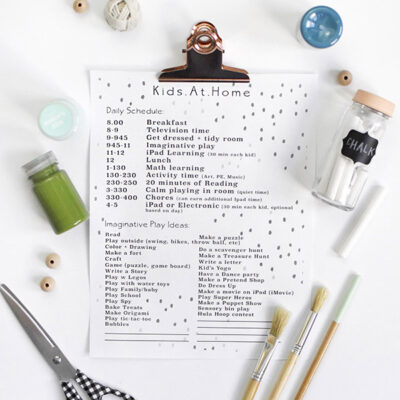 Kids.At.Home
Daily Schedule:
8.00 Breakfast
8-9 Television time
9-945 Get dressed + tidy room
945-11 Imaginative play
11-12 iPad Learning (30 min each kid)
12 Lunch
1-130 Math learning
130-230 Activity time (Art, PE, Music)
230-250 20 minutes of Reading
3-330 Calm playing in room (quiet time)
330-400 Chores (can earn additional Ipad time)
4-5 iPad or Electronic (30 min each kid, optional
based on day)
Imaginative Play Ideas:
Read
Play outside (swing, bikes, throw ball, etc)
Color + Drawing
Make a fort
Craft
Game (puzzle, game board)
Write a Story
Play w Legos
Play with water toys
Play Family/baby
Play School
Play Spy
Bake Treats
Make Origami
Play tic-tac-toe
Bubbles
Make a puzzle
Do a scavenger hunt
Make a Treasure Hunt
Write a letter
Kid's Yoga
Have a Dance party
Make a Pretend Shop
Do Dress Up
Make a movie on iPad (iMovie)
Play Super Heros
Make a Puppet Show
Sensory bin play
Hula Hoop contest
CHALK